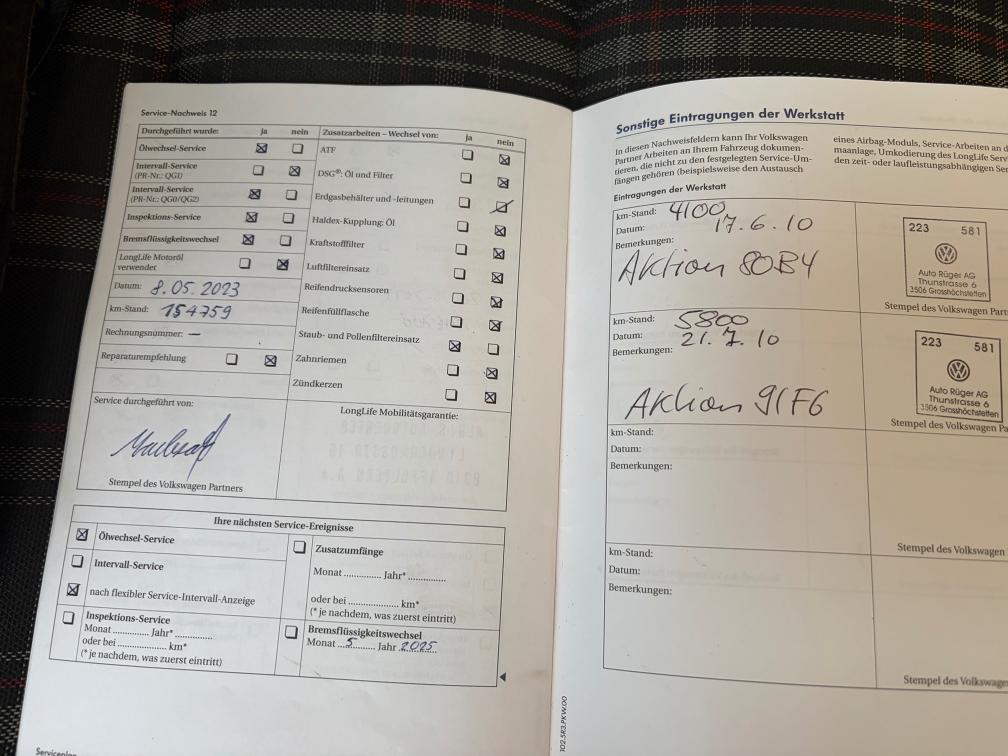 Service-Nachweis 12
Durchgeführt wurde: ja nein
Ölwechsel-Service
Intervall-Service
(PR-Nr.: QG1)
Intervall-Service
(PR-Nr.: QG0/QG2)
Inspektions-Service
Bremsflüssigkeitswechsel
LongLife Motoröl
verwendet
Datum: 8.05.2023
km-Stand: 154759
Rechnungsnummer: —
Reparaturempfehlung
Service durchgeführt von:
Stempel des Volkswagen Partners
Zusatzarbeiten – Wechsel von: ja nein
ATF
DSG®: Öl und Filter
Erdgasbehälter und -leitungen
Haldex-Kupplung: Öl
Kraftstofffilter
Luftfiltereinsatz
Reifendrucksensoren
Reifenfüllflasche
Staub- und Pollenfiltereinsatz
Zahnriemen
Zündkerzen
LongLife Mobilitätsgarantie:
Ihre nächsten Service-Ereignisse
Ölwechsel-Service
Intervall-Service
nach flexibler Service-Intervall-Anzeige
Inspektions-Service
Monat ............ Jahr* ............
oder bei .................. km*
(* je nachdem, was zuerst eintritt)
Zusatzumfänge
Monat ............ Jahr* ............
oder bei .................. km*
(* je nachdem, was zuerst eintritt)
Bremsflüssigkeitswechsel
Monat 5 Jahr 2025
Sonstige Eintragungen der Werkstatt
In diesen Nachweisfeldern kann Ihr Volkswagen
Partner Arbeiten an Ihrem Fahrzeug dokumen-
tieren, die nicht zu den festgelegten Service-Um-
fängen gehören (beispielsweise den Austausch
eines Airbag-Moduls, Service-Arbeiten an d
maanlage, Umkodierung des LongLife Serv
den zeit- oder laufleistungsabhängigen Ser
Eintragungen der Werkstatt
km-Stand: 4100
Datum: 17.6.10
Bemerkungen:
Aktion 80B4
223 581
Auto Rüger AG
Thunstrasse 6
3506 Grosshöchstetten
Stempel des Volkswagen Part
km-Stand: 5800
Datum: 21.7.10
Bemerkungen:
Aktion 91F6
223 581
Auto Rüger AG
Thunstrasse 6
3506 Grosshöchstetten
Stempel des Volkswagen Pa
km-Stand:
Datum:
Bemerkungen:
Stempel des Volkswagen
km-Stand:
Datum:
Bemerkungen:
Stempel des Volkswagen
102.5R3.PKW.00